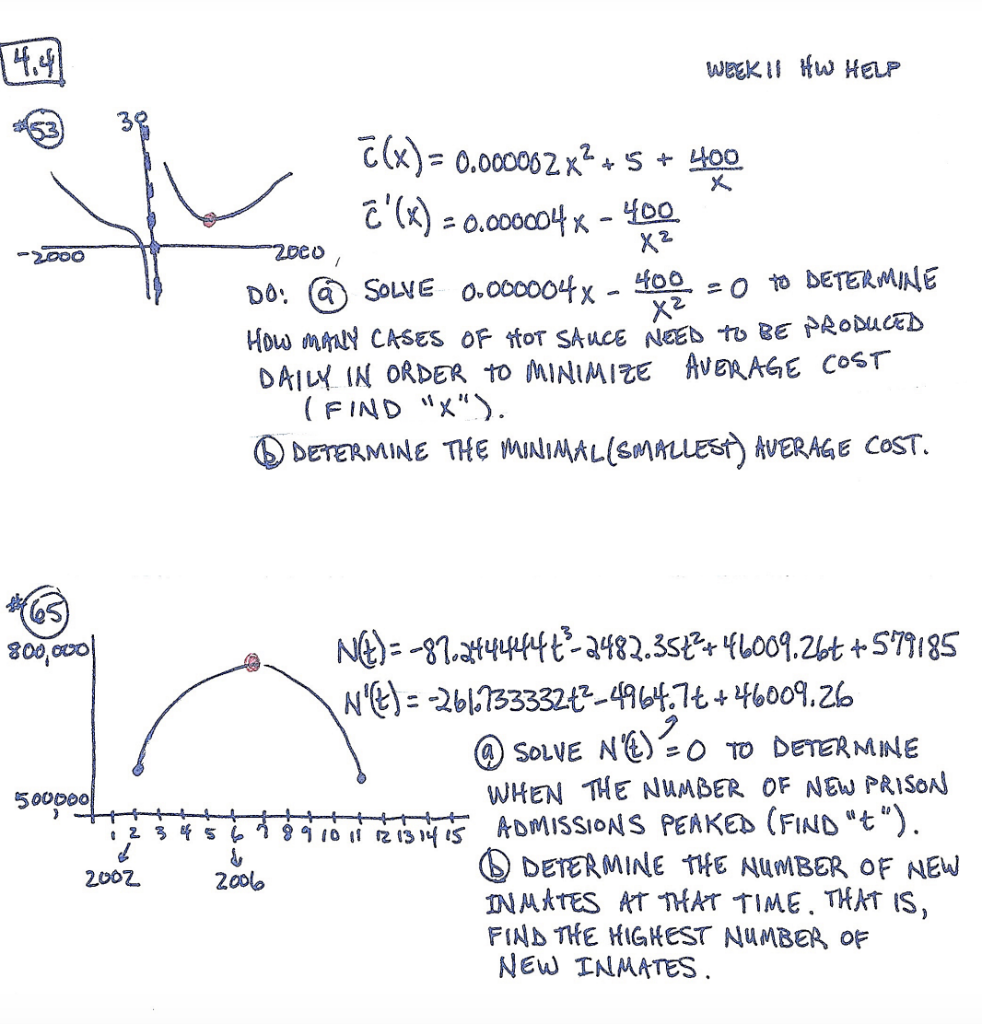 4.4
WEEK 11 HW HELP
#53
30
-2000
2000
C̄(x) = 0.000002x² + 5 + 400/x
C̄'(x) = 0.000004x - 400/x²
DO: (a) SOLVE 0.000004x - 400/x² = 0 TO DETERMINE
HOW MANY CASES OF HOT SAUCE NEED TO BE PRODUCED
DAILY IN ORDER TO MINIMIZE AVERAGE COST
(FIND "X").
(b) DETERMINE THE MINIMAL (SMALLEST) AVERAGE COST.
#65
800,000
500000
1 2 3 4 5 6 7 8 9 10 11 12 13 14 15
2002
2006
N(t) = -87.244444t³ - 2482.35t² + 46009.26t + 579185
N'(t) = -261.733332t² - 4964.7t + 46009.26
(a) SOLVE N'(t) = 0 TO DETERMINE
WHEN THE NUMBER OF NEW PRISON
ADMISSIONS PEAKED (FIND "t").
(b) DETERMINE THE NUMBER OF NEW
INMATES AT THAT TIME. THAT IS,
FIND THE HIGHEST NUMBER OF
NEW INMATES.